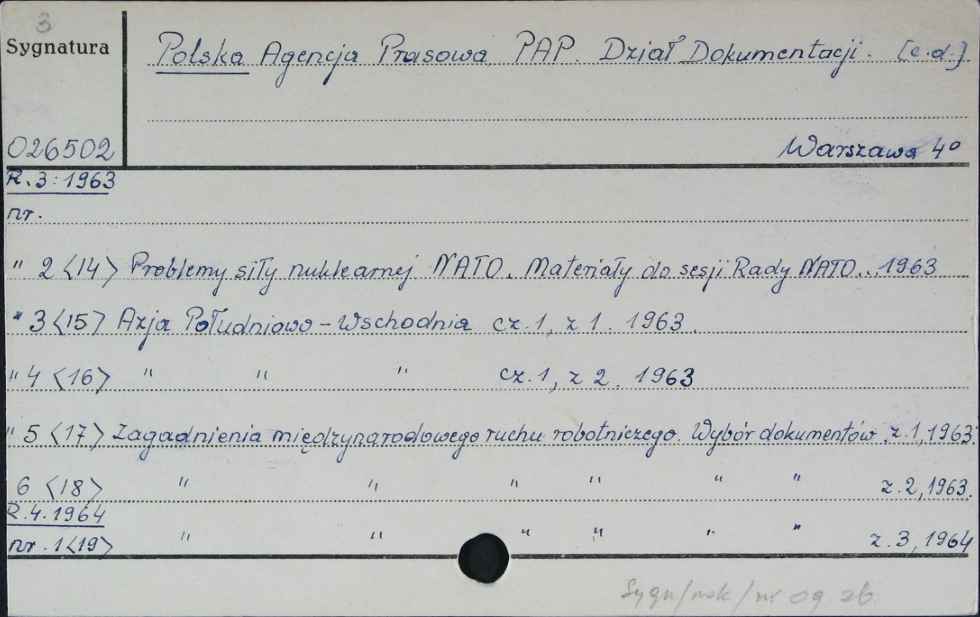 3
Sygnatura
Polska Agencja Prasowa PAP. Dział Dokumentacji. [c.d.]
026502
Warszawa 4°
R.3:1963
nr.
" 2 <14> Problemy siły nuklearnej NATO. Materiały do sesji Rady NATO.. 1963
" 3 <15> Azja Południowo-Wschodnia cz.1, z 1. 1963.
" 4 <16> " " " cz.1, z 2. 1963
" 5 <17> Zagadnienia międzynarodowego ruchu robotniczego. Wybór dokumentów. z.1, 1963.
6 <18> " " " " " " z.2, 1963.
R.4.1964
nr. 1<19> " " " " " " z.3, 1964
Sygn/rok/nr og zb.